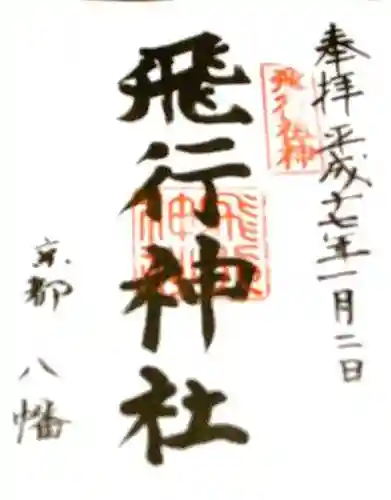 奉拝 平成十七年一月二日
飛行神社
飛行神社
京都 八幡